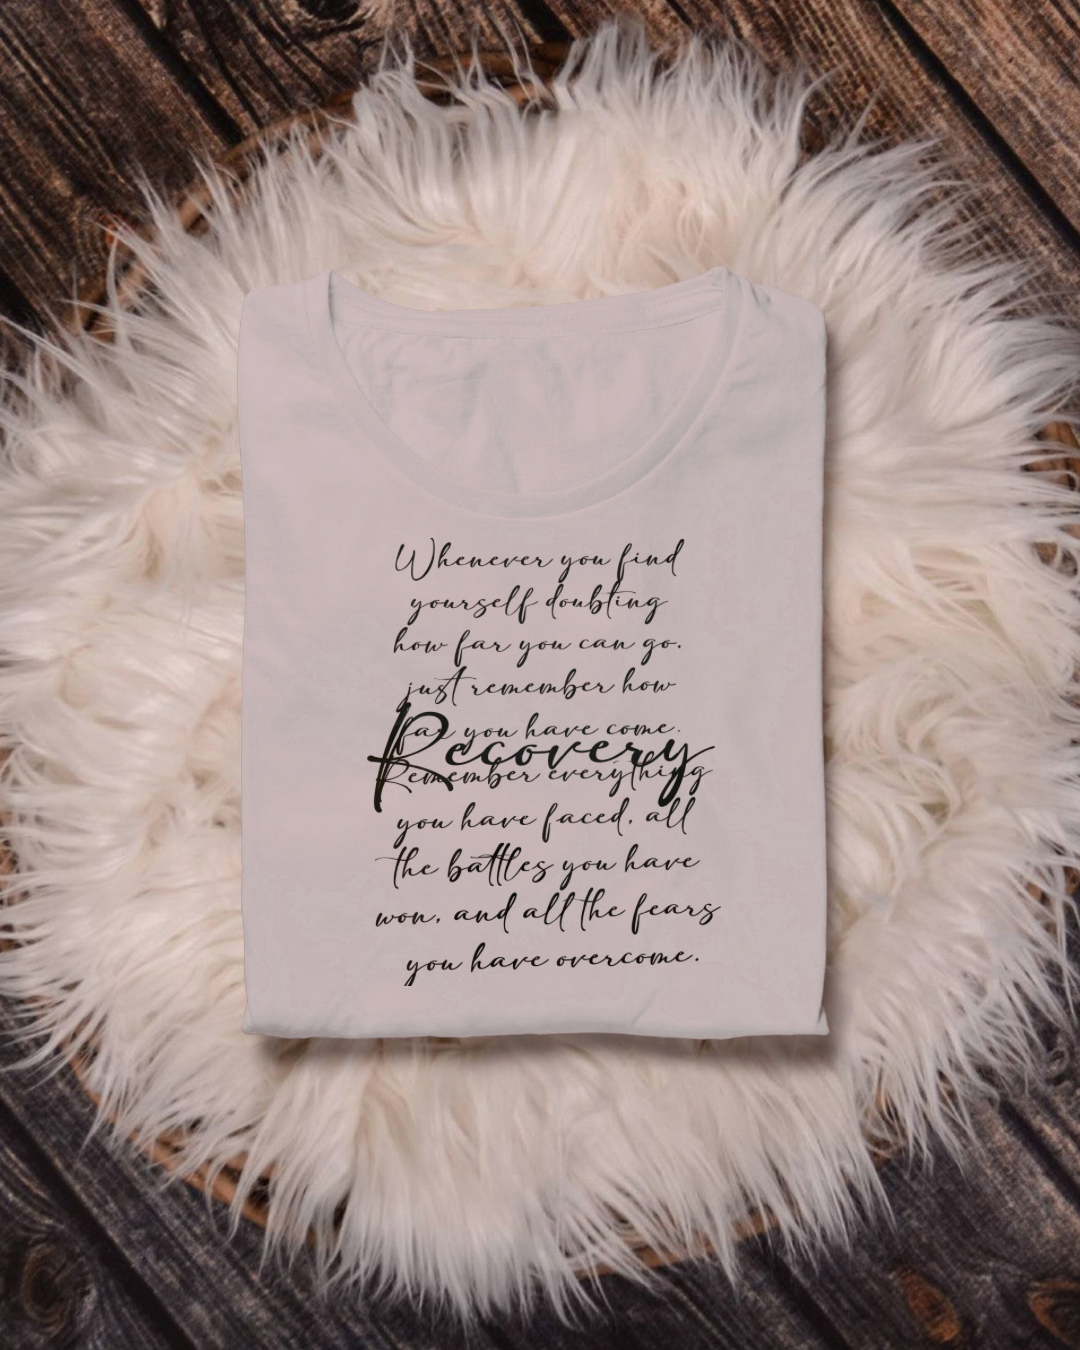 Whenever you find
yourself doubting
how far you can go.
just remember how
far you have come.
Recovery
Remember everything
you have faced, all
the battles you have
won, and all the fears
you have overcome.